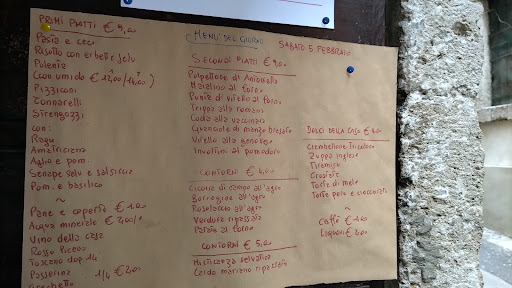 PRIMI PIATTI € 9,00
Pasta e ceci
Risotto con erbette selv
Polenta
(con umido € 12,00/14,00)
Pizziconi
Tonnarelli
Strengozzi
con:
Ragù
Amatriciana
Aglio e pom.
Senape selv e salsicce
Pom. e basilico
~
Pane e coperto € 1,00
Acqua minerale € 2,00
Vino della casa
Rosso Piceno
Toscano
Passerina 1/4 € 2,00
MENÙ DEL GIORNO
SABATO 5 FEBBRAIO
SECONDI PIATTI € 9,00
Polpettone di
Maialino al forno
Punta di vitello al forno
Trippa alla romana
Coda alla vaccinara
Guanciale di manzo brasato
Vitello alla genovese
Involtini al pomodoro
CONTORNI € 4,00
Cicoria di campo all'agro
Borragine all'agro
Rosolaccio all'agro
Verdure ripassate
Patate al forno
CONTORNI € 5,00
Misticanza selvatica
Cardo mariano ripassato
DOLCI DELLA CASA € 4,00
Ciambellone tricolore
Zuppa inglese
Tiramisù
Crostate
Torta di mele
Torta pere e cioccolato
~
Caffè € 1,00
Liquori €